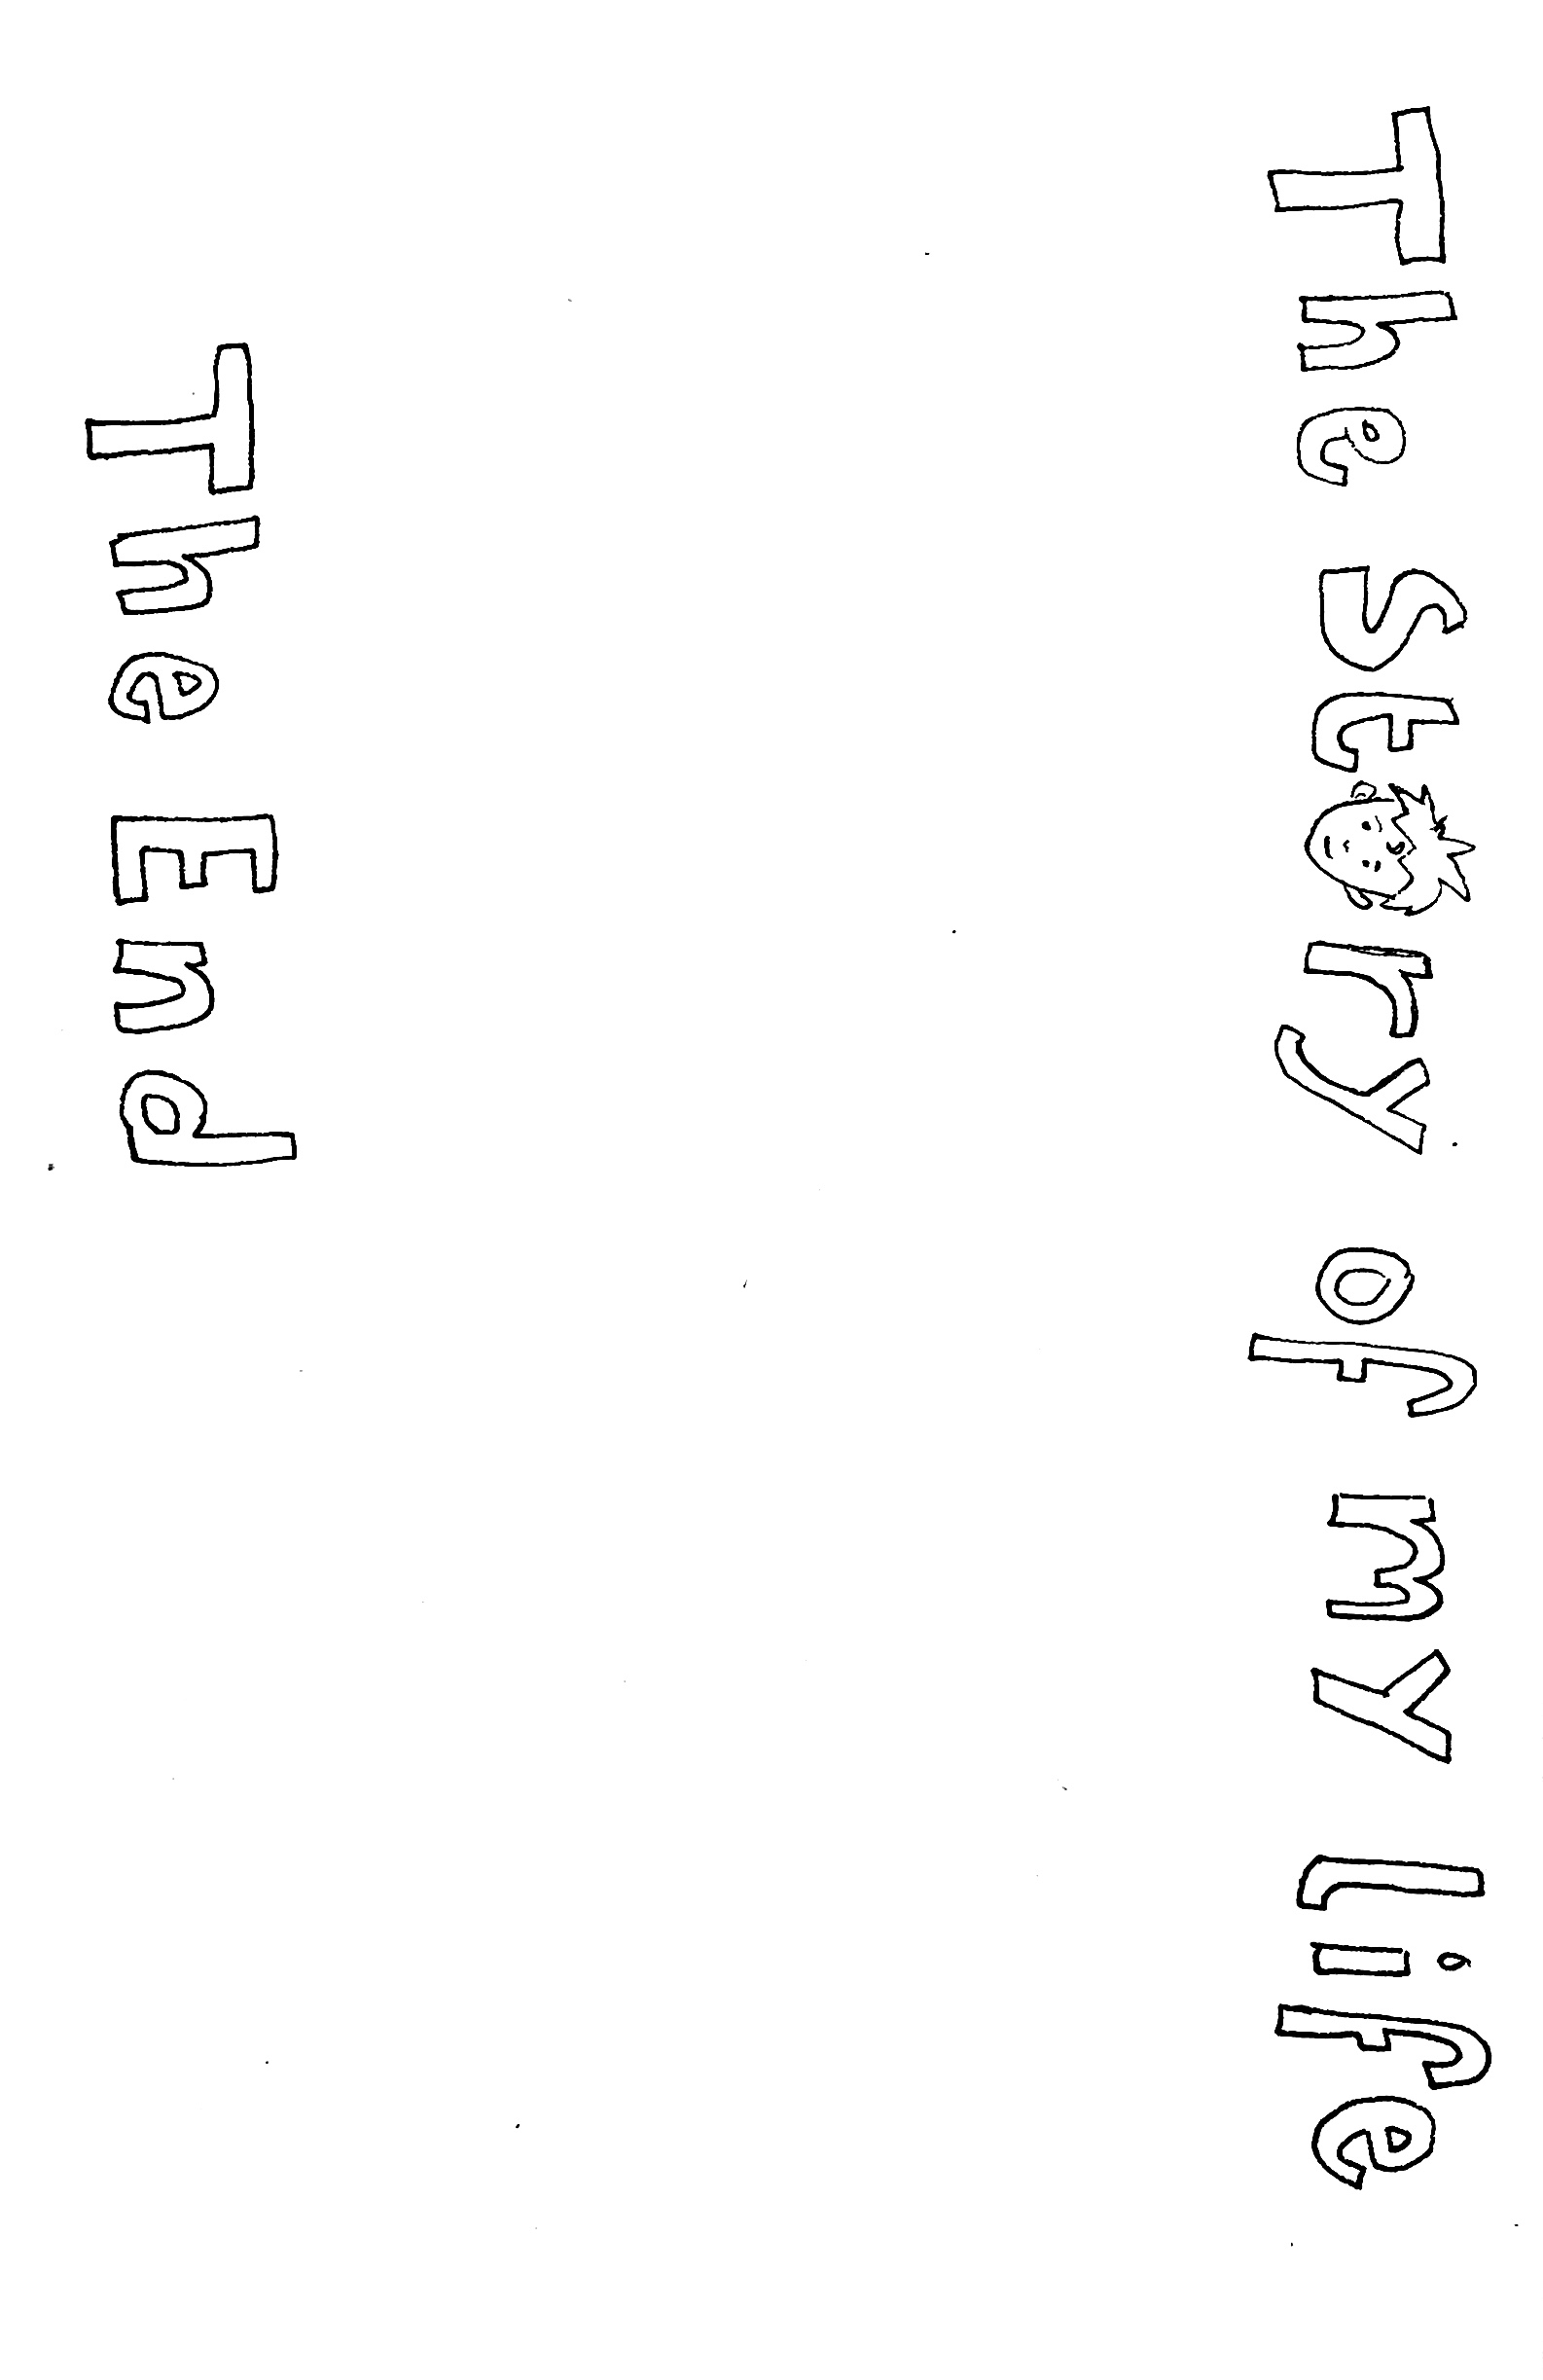 The Story of my life
The End